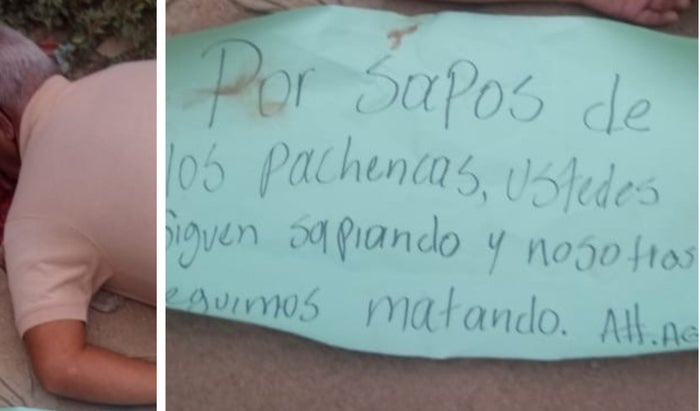 Por sapos de
los pachencas, ustedes
siguen sapiando y nosotros
seguimos matando. Att. AG